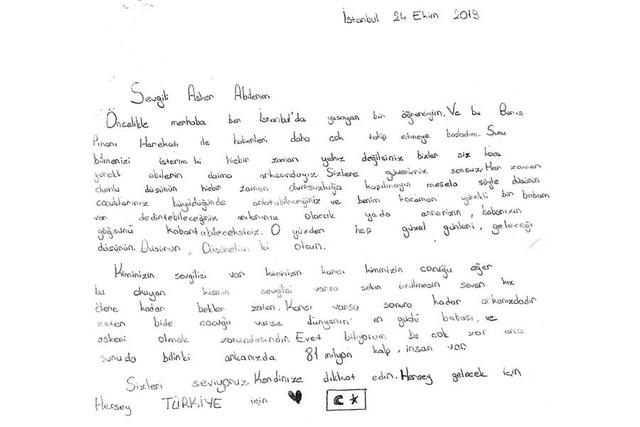 İstanbul 24 Ekim 2019
Sevgili Asker Abilerim
Öncelikle merhaba ben İstanbul'da yaşayan bir öğrenciyim. Ve bu Barış
Pınarı Harekatı ile haberleri daha çok takip etmeye başladım. Şunu
bilmenizi isterim ki hiçbir zaman yalnız değilsiniz bizler siz koca
yürekli abilerin daima arkasındayız. Sizlere güvenimiz sonsuz. Her zaman
olumlu düşünün hiçbir zaman olumsuzluğa kapılmayın mesela şöyle düşünün
çocuklarınız büyüdüğünde anlatabileceğiniz ve benim kocaman yürekli bir babam
var dedirtebileceğiniz anılarınız olacak yada annenizin, babanızın
göğsünü kabartabileceksiniz. O yüzden hep güzel günleri, geleceği
düşünün. Düşünün, Düşünelim ki olsun.
Kiminizin sevgilisi var kiminizin karısı kiminizin çocuğu eğer
bu okuyan kişinin sevgilisi varsa sakın üzülmesin seven
ölene kadar bekler zaten. Karısı varsa sonuna kadar arkanızdadır
zaten bide çocuğu varsa dünyanın en güçlü babası, ve
askeri olmak zorundasındır. Evet biliyorum bu çok zor ama
şunu da bilinki arkanızda 81 milyon kalp, insan var
Sizleri seviyoruz. Kendinize dikkat edin. Herşey gelecek için
Herşey TÜRKİYE için